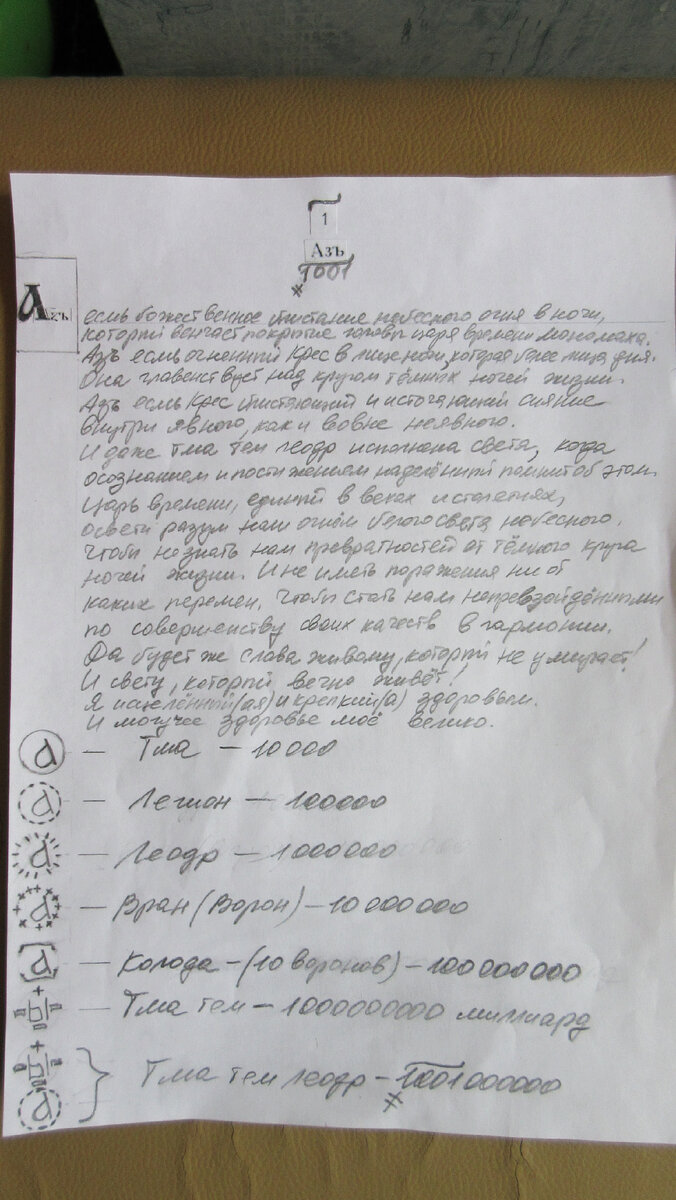 1
Азъ
1001
Азъ
есмь божественное блистание небесного огня в ночи,
который венчает покрытие головы царя времени мономаха.
Азъ есмь огненный Крес в лице ночи, которая более лица дня.
Она главенствует над кругом тёмных ночей жизни.
Азъ есмь Крес блистающий и источающий сияние
внутри явного, как и вовне неявного.
И даже Тма тем леодр исполнена света, когда
осознанием и постижением наделённый помнит об этом.
Царь времени, единый в веках и столетиях,
освети разум нам огнём белого света небесного.
Чтобы не знать нам превратностей от тёмного круга
ночей жизни. И не иметь поражения ни от
каких перемен. Чтобы стать нам непревзойдёнными
по совершенству своих качеств в гармонии.
Да будет же слава живому, который не умирает!
И свету, который вечно живёт!
Я исцелённый(ая) и крепкий(а) здоровьем.
И могучее здоровье моё велико.
а — Тма — 10000
а — Легион — 100000
а — Леодр — 1000000
а — Вран (Ворон) — 10000000
а — Колода — (10 воронов) — 100000000
— Тма тем — 1000000000 миллиард
а } Тма тем леодр — 1001000000